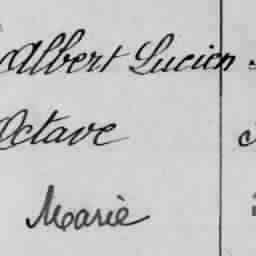 Albert Lucien
Octave
Marie